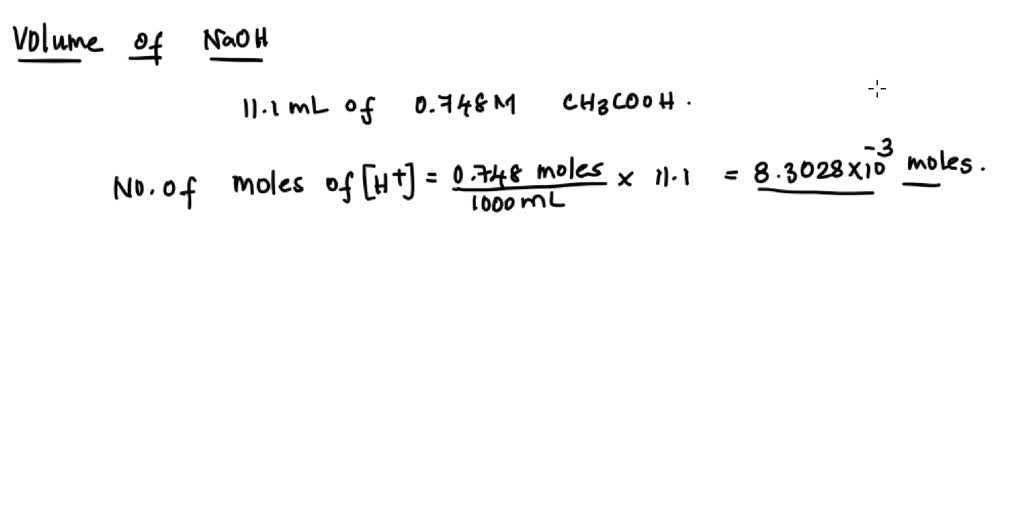 Volume of NaOH
11.1 mL of 0.748M CH3COOH.
No. of moles of [H+] = 0.748 moles / 1000 mL × 11.1 = 8.3028×10^-3 moles.